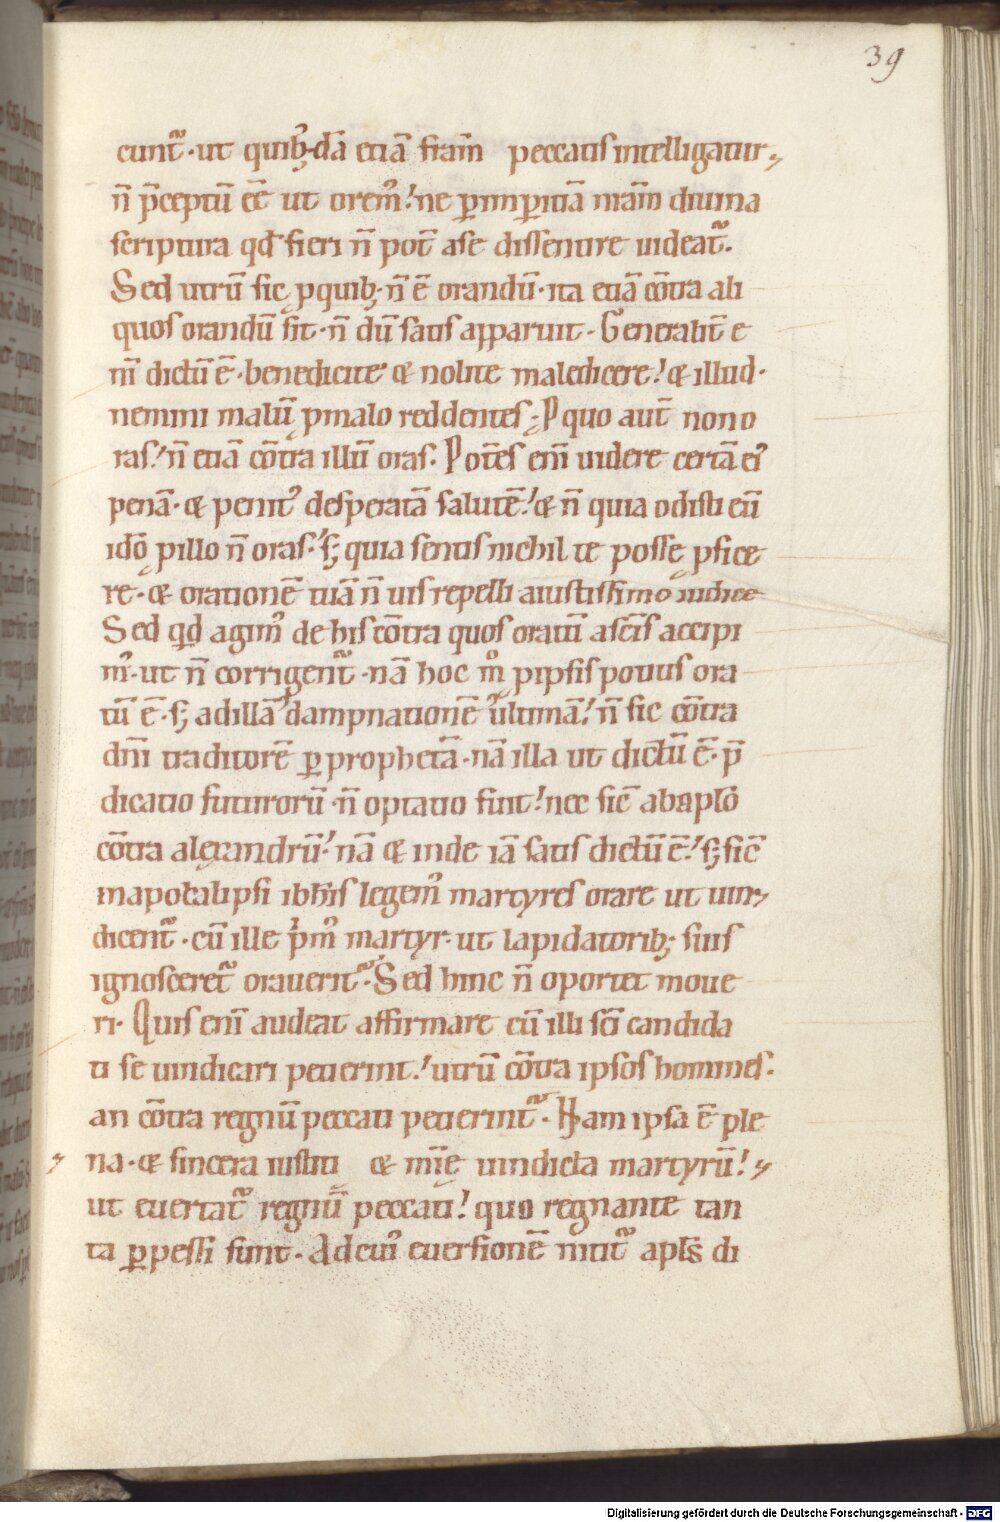 39
cunt᷑·ut quib;·dā etiā frām peccatis intelligatur.,
n̄ p̄ceptū eē ut orem᷒! ne ꝑ imꝑitiā nrām diuina
scriptura qd̄ fieri n̄ pot̄ a se dissentire uideat᷑.
Sed utrū sic ꝓ quib; n̄ ē orandū·ita etiā cōtra ali
quos orandū sit·n̄ dū satis apparuit·Generalit̄ e
nī dictū ē·benedicite & nolite maledicere! & illud·
nemini malū ꝓ malo reddentes·Ꝓ quo aut̄ non o
ras! n̄ etiā cōtra illū oras·Potes enī uidere certā ei᷒
penā·& penit᷒ desperatā salutē! & n̄ quia odisti eū
idō ꝓ illo n̄ oras·s; quia sentis nichil te posse ꝓfice
re·& orationē tuā n̄ uis repelli a iustissimo iudice
Sed qd̄ agim᷒ de his cōtra quos oratū a sc̄is accipi
m᷒·ut n̄ corrigent᷑·nā hoc m̊ ꝓ ipsis potius ora
tū ē·s; ad illā dampnationē ultimā! n̄ sic cōtra
dn̄i traditorē ꝑ prophetā·nā illa ut dictū ē·p̄
dicatio futurorū·n̄ optatio fuit! nec sic̄ ab aplō
cōtra alexandrū! nā & inde iā satis dictū ē! s; sic̄
in apocalipsi iohis legem᷒ martyres orare ut uin
dicent᷑·cū ille pm᷒ martyr·ut lapidatorib; suis
ignosceret᷑ orauerit·Sed hinc n̄ oportet moue
ri·Quis enī audeat affirmare cū illi sc̄i candida
ti se uindicari petierint! utrū cōtra ipsos homines·
an cōtra regnū peccati petierint·Nam ipsa ē ple
na·& sincera iustiti & mīe uindicta martyrū!
ut euertat᷑ regnū peccati! quo regnante tan
ta ꝑpessi sunt·Ad cui᷒ euersionē nitit᷑ apls di
Digitalisierung gefördert durch die Deutsche Forschungsgemeinschaft - DFG